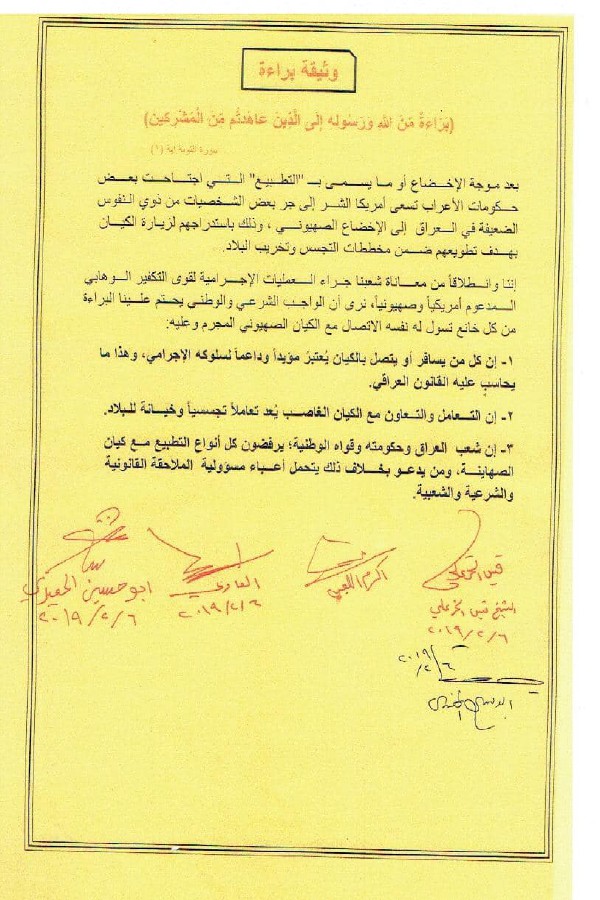 وثيقة براءة
(بَرَاءةٌ مِّنَ اللّهِ وَرَسُولِهِ إِلَى الَّذِينَ عَاهَدتُّم مِّنَ الْمُشْرِكِينَ)
سورة التوبة اية (١)
بعد موجة الإخضاع أو ما يسمى بـ "التطبيع" التي اجتاحت بعض
حكومات الأعراب تسعى أمريكا الشر إلى جر بعض الشخصيات من ذوي النفوس
الضعيفة في العراق إلى الإخضاع الصهيوني ، وذلك باستدراجهم لزيارة الكيان
بهدف تطويعهم ضمن مخططات التجسس وتخريب البلاد.
إننا وانطلاقاً من معاناة شعبنا جراء العمليات الإجرامية لقوى التكفير الوهابي
المدعوم أمريكياً وصهيونياً، نرى أن الواجب الشرعي والوطني يحتم علينا البراءة
من كل خانع تسول له نفسه الاتصال مع الكيان الصهيوني المجرم وعليه:
١- إن كل من يسافر أو يتصل بالكيان يُعتبرُ مؤيداً وداعماً لسلوكه الإجرامي، وهذا ما
يحاسب عليه القانون العراقي.
٢- إن التعامل والتعاون مع الكيان الغاصب يُعد تعاملاً تجسسياً وخيانة للبلاد.
٣- إن شعب العراق وحكومته وقواه الوطنية؛ يرفضون كل أنواع التطبيع مع كيان
الصهاينة، ومن يدعو بخلاف ذلك يتحمل أعباء مسؤولية الملاحقة القانونية
والشرعية والشعبية.
قيس الخزعلي
الشيخ قيس الخزعلي
٢٠١٩/٢/٦
اكرم الكعبي
٢٠١٩/٢/٦
ابو حسين الحميداوي
٢٠١٩/٢/٦
٢٠١٩
٢/٦